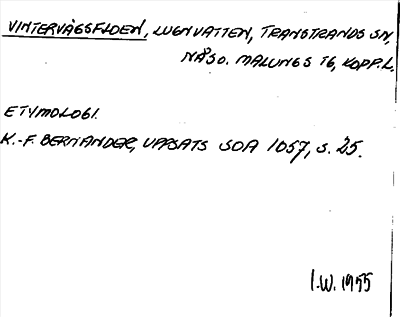 VINTERVÄGSFLOEN, LUGNVATTEN, TRANSTRANDS SN,
NÅSO. MALUNGS TG, KOPP.L.
ETYMOLOGI.
K.-F. BERNANDER, UPPSATS SOA 1057, S. 25.
I.W. 1955